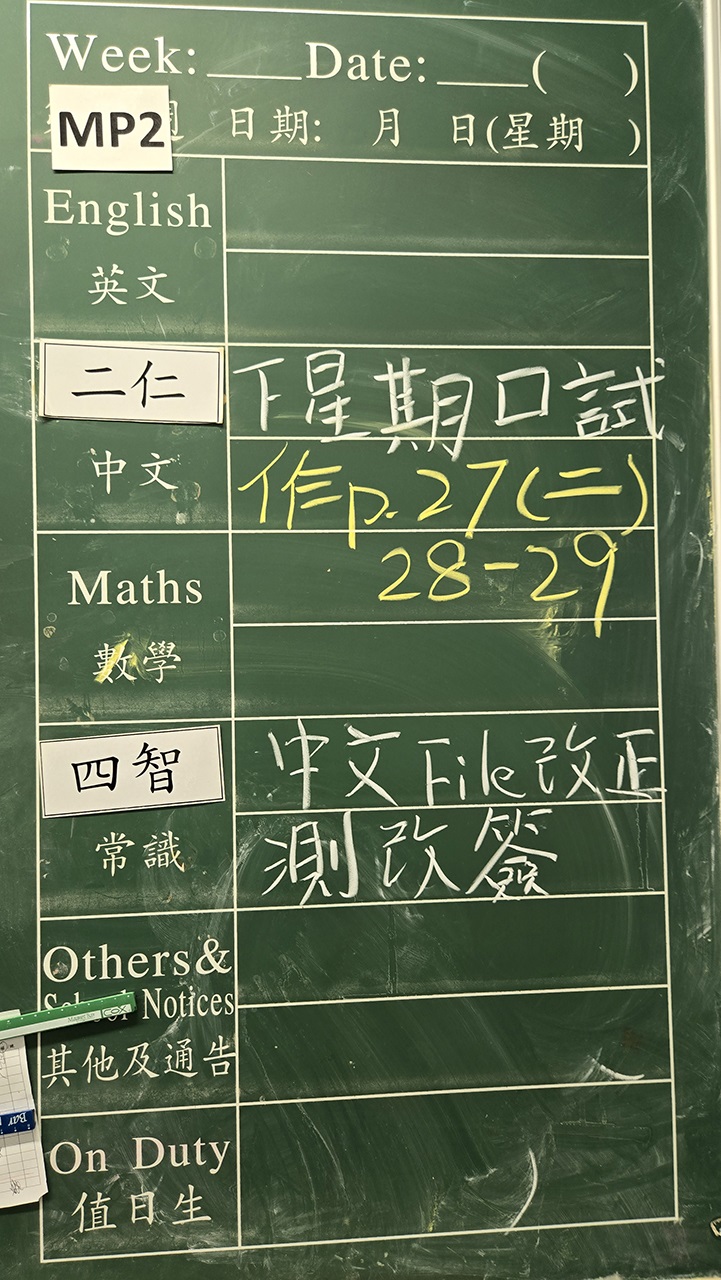 Week: ____ Date: ____ (    )
MP2 週 日期: 月 日(星期 )
English
英文
二仁
下星期口試
中文
作p.27(二)
28-29
Maths
數學
四智
中文File改正
常識
測改簽
Others&
School Notices
其他及通告
On Duty
值日生
COX
Bar